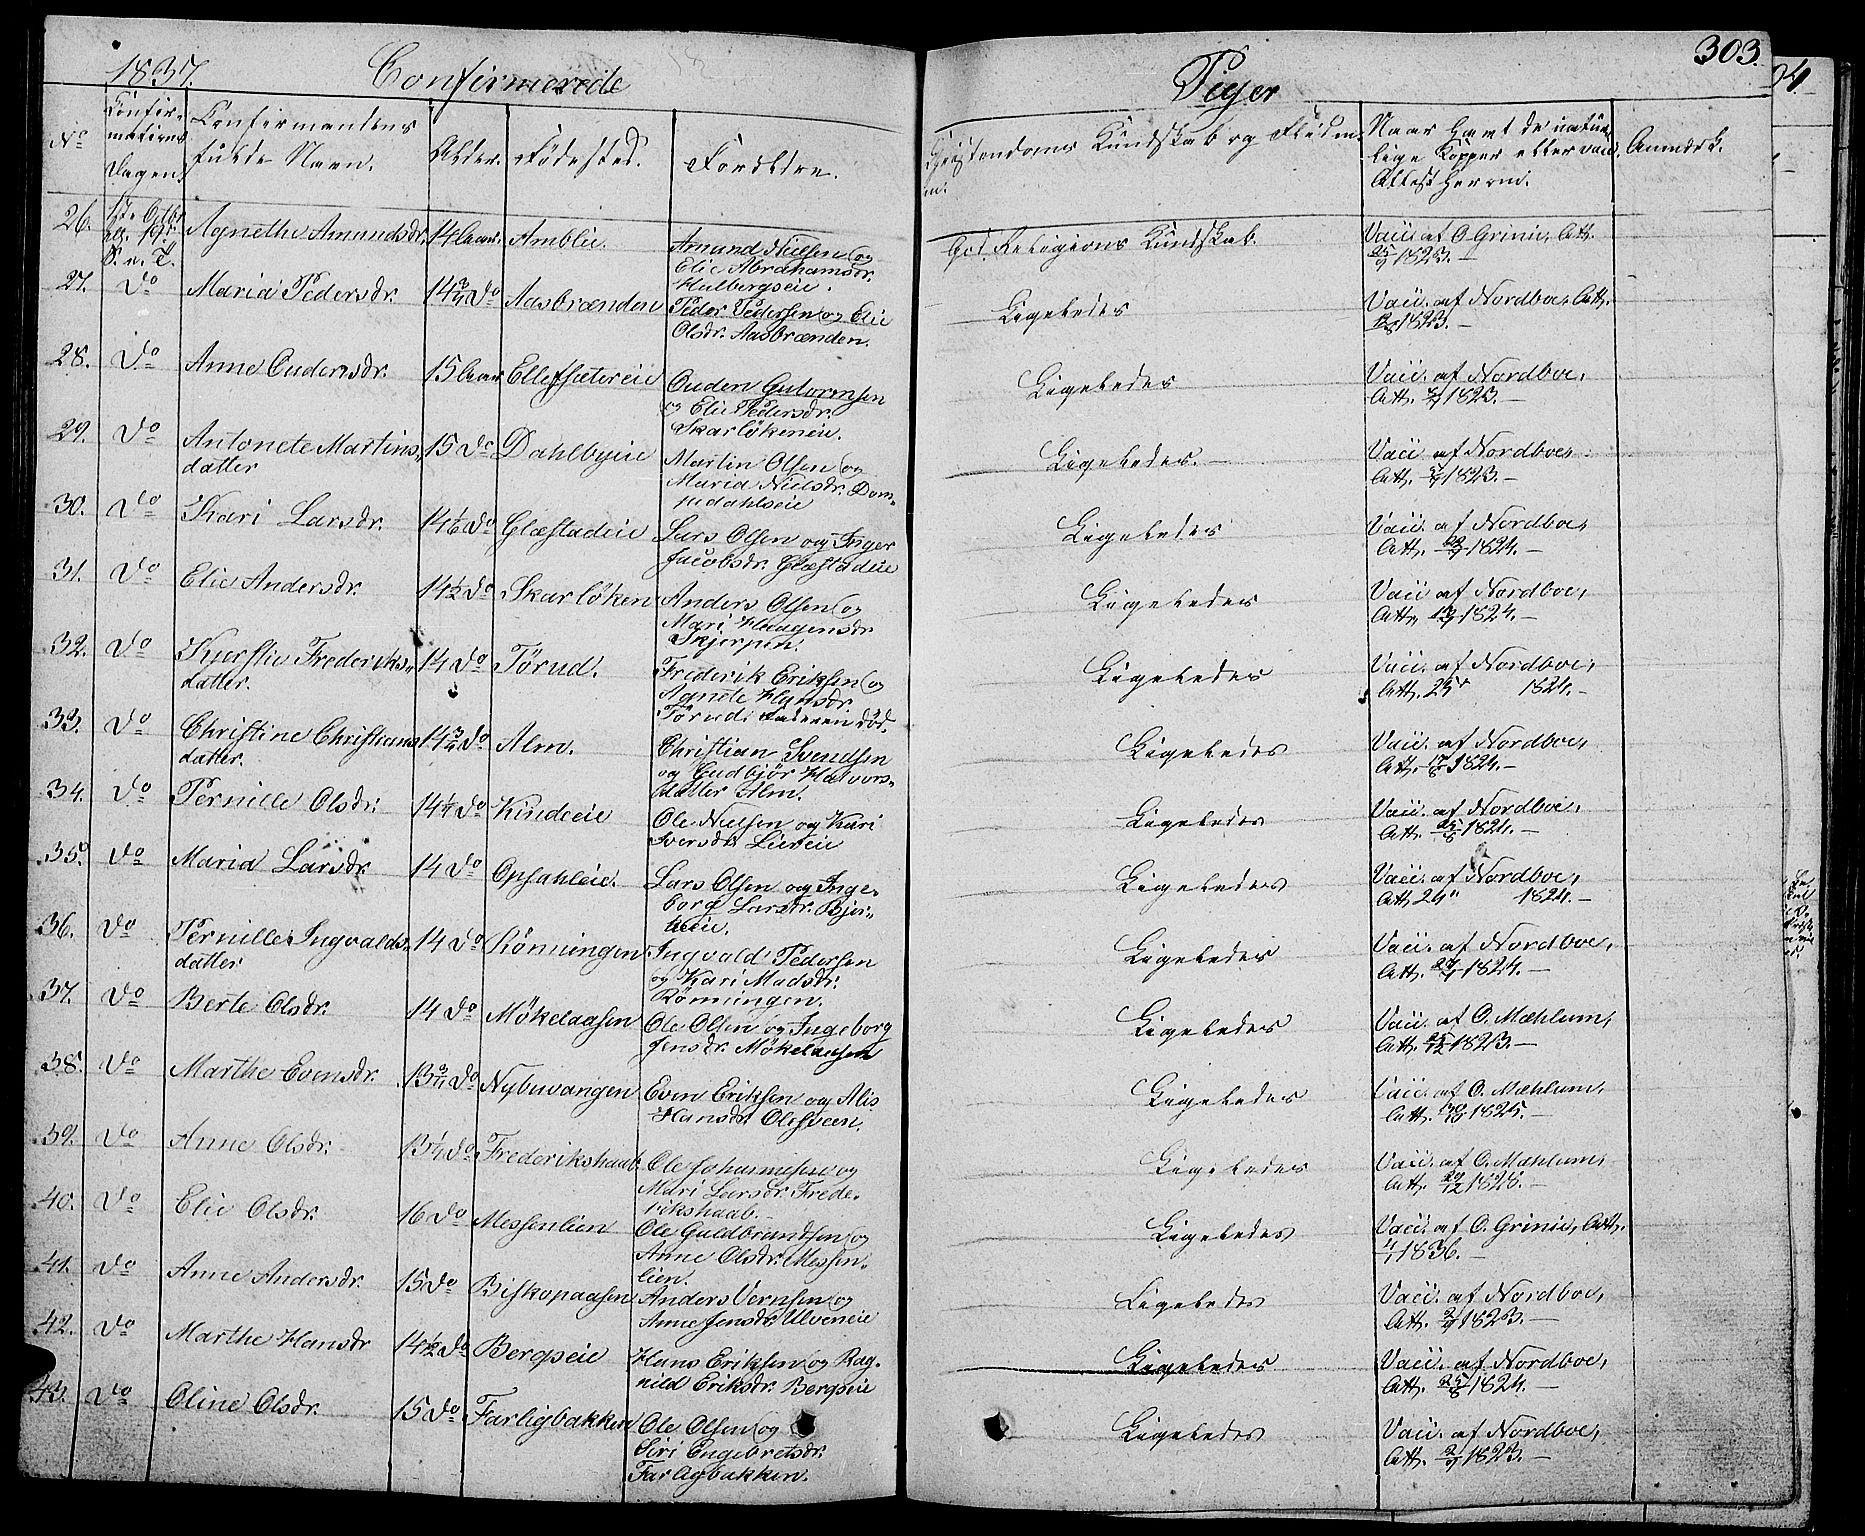 1837. Confirmerede Piger 303.
No Confir- mations Dagen. Confirmantens fulde Navn. Alder. Fødested. Forældre. Christendoms Kundskab og Flid m. m. Naar havt de natur- lige Kopper eller vacc. Attest herom. Anmærk.
26. 1ste Octbr. 19. S. e. T. Agnethe Amundsdr. 14 aar. Amblie. Amund Nielsen og Elie Abrahamsdr. Hulbergseie. God Religions Kundskab. Vacc. af O. Grinie, Att. 1823.
27. Do Maria Pedersdr. 14 3/4 Do Aasbrænden Peder Pedersen og Elie Olsdr. Aasbrænden. Ligeledes Vacc. af Nordboe, Att. 1823.–
28. Do Anne Oudensdr. 15 Aar Ellefsætereie Ouden Gutormsen og Elie Pedersdr. Skarløkeneie. Ligeledes Vacc. af Nordboe, Att. 1823.–
29. Do Antonete Martins- datter 15 Do Dahlbyeie Martin Olsen og Maria Nielsdr. Dom- judahlseie Ligeledes.– Vacc. af Nordboe, Att. 1823.–
30. Do Kari Larsdr. 14 1/6 Do Glæstadeie Lars Olsen og Inger Jacobsdr. Glæstadeie Ligeledes Vacc. af Nordboe, Att. 1824.–
31. Do Elie Andersdr. 14 1/2 Do Skarløken Anders Olsen og Mari Haagensdr Skjerpen. Ligeledes Vacc. af Nordboe, Att. 1824.–
32. Do Kjerstie Frederiks- datter. 14 Do Tørud. Frederik Eriksen og Agnete Hansdr. Tørud. Faderen død. Ligeledes Vacc. af Nordboe, Att. 25 1824.–
33. Do Christine Christians datter. 14 3/4 Do Alm. Christian Svendsen og Gudbjør Halvors- datter Alm. Ligeledes Vacc. af Nordboe, Att. 1824.–
34. Do Pernille Olsdr. 14 1/4 Do Kindeeie Ole Nielsen og Kari Iversdr. Lieeie Ligeledes Vacc. af Nordboe, Att. 1824.–
35. Do Maria Larsdr. 14 Do Opsahleie. Lars Olsen og Inge- borg Larsdr. Ligeledes Vacc. af Nordboe, Att. 1824.–
36. Do Pernille Ingvalds- datter 14 Do Rønningen Ingvald Pedersen og Kari Madsdr. Rønningen. Ligeledes Vacc. af Nordboe, Att. 1824.–
37. Do Berte Olsdr. 14 Do Møkelaasen Ole Olsen og Ingeborg Jensdr. Møkelaasen Ligeledes Vacc. af O. Mæhlum, Att. 1823.–
38. Do Marthe Evensdr. 13 3/4 Do Nybuvangen Even Eriksen og Alis Hansdr. Olesveen. Ligeledes Vacc. af O. Mæhlum, Att. 1825.–
39. Do Anne Olsdr. 13 1/4 Do Frederikshaab Ole Johannesen og Mari Larsdr. Frede- rikshaab.– Ligeledes Vacc. af O. Mæhlum, Att. 1828.–
40. Do Elie Olsdr. 16 Do Messenlien Ole Guldbrandsen og Anne Olsdr. Messen- lien. Ligeledes Vacc. af O. Grinie, Att. 1836.–
41. Do Anne Andersdr. 15 Do Biskopaasen Anders Vernsen og Anne Jensdr. Ulveneie Ligeledes Vacc. af Nordboe, Att. 1823.–
42. Do Marthe Hansdr 14 1/2 Do Bergseie Hans Eriksen og Rag- nild Eriksdr. Bergseie Ligeledes Vacc. af Nordboe, Att. 1824.–
43. Do Oline Olsdr. 15 Do Farligbakken Ole Olsen og Siri Engebretsdr. Farligbakken. Ligeledes Vacc. af Nordboe, Att. 1823.–